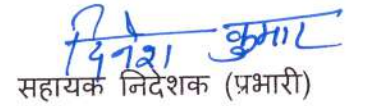 दिनेश कुमार
सहायक निदेशक (प्रभारी)